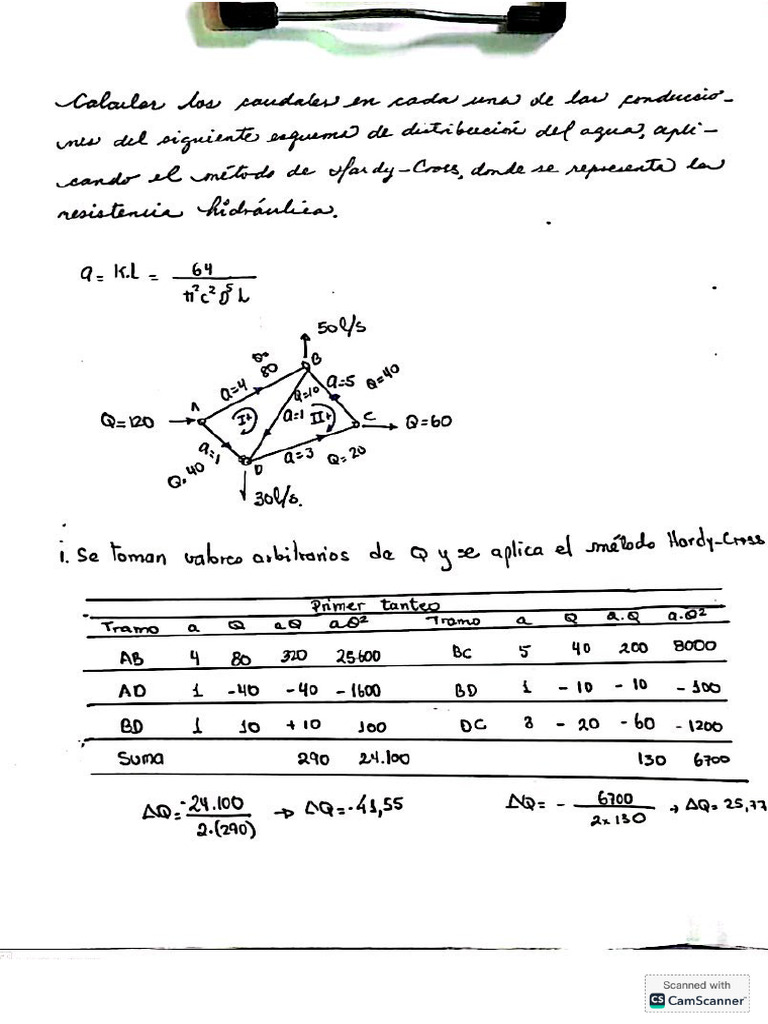 Calcular los caudales en cada una de las conduccio-
nes del siguiente esquema de distribución del agua, apli-
cando el método de Hardy-Cross, donde se representa la
resistencia hidráulica.
a = K.L = 64 / π² c² D⁵ L
50 l/s
B
80
a=4
Q=10
a=5
Q=40
A
Q=120
I+
a=1
II+
C
Q=60
a=1
Q=40
D
a=3
Q=20
30 l/s.
i. Se toman valores arbitrarios de Q y se aplica el método Hardy-Cross
Primer tanteo
Tramo a Q aQ aQ² Tramo a Q a.Q a.Q²
AB 4 80 320 25600 BC 5 40 200 8000
AD 1 -40 -40 -1600 BD 1 -10 -10 -100
BD 1 10 +10 100 DC 3 -20 -60 -1200
Suma 290 24.100 130 6700
ΔQ = -24.100 / 2.(290) → ΔQ = -41,55 ΔQ = - 6700 / 2x130 → ΔQ = 25,77
Scanned with
CS CamScanner